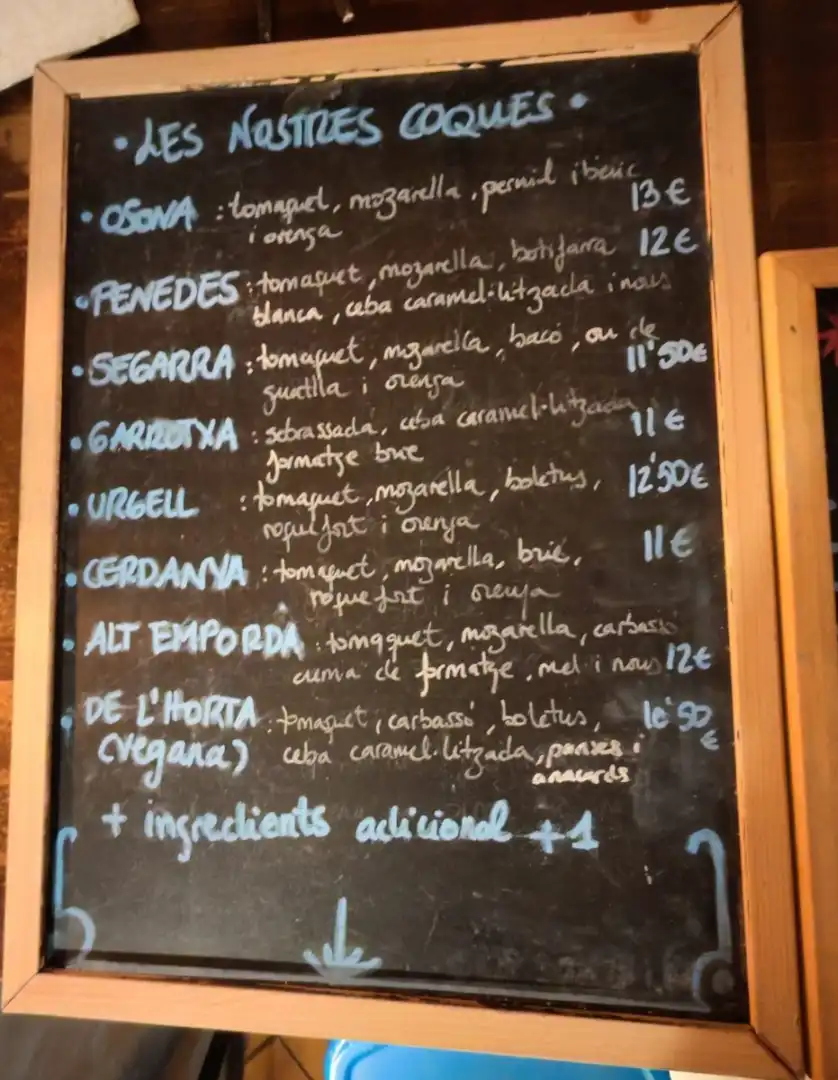 • LES NOSTRES COQUES •
• OSONA : tomaquet, mozarella, pernil iberic
i orenga 13€
• PENEDES : tomaquet, mozarella, botifarra 12€
blanca, ceba caramel·litzada i nous
• SEGARRA : tomaquet, mozarella, bacó, ou de
guatlla i orenga 11'50€
• GARROTXA : sobrassada, ceba caramel·litzada
formatge brie 11€
• URGELL : tomaquet, mozarella, boletus, 12'50€
roquefort i orenga
• CERDANYA : tomaquet, mozarella, brie, 11€
roquefort i orenga
• ALT EMPORDA : tomaquet, mozarella, carbassó
crema de formatge, mel i nous 12€
• DE L'HORTA : tomaquet, carbassó, boletus, 10'50
€
(vegana) ceba caramel·litzada, panses i
anacards
+ ingredients adicional +1